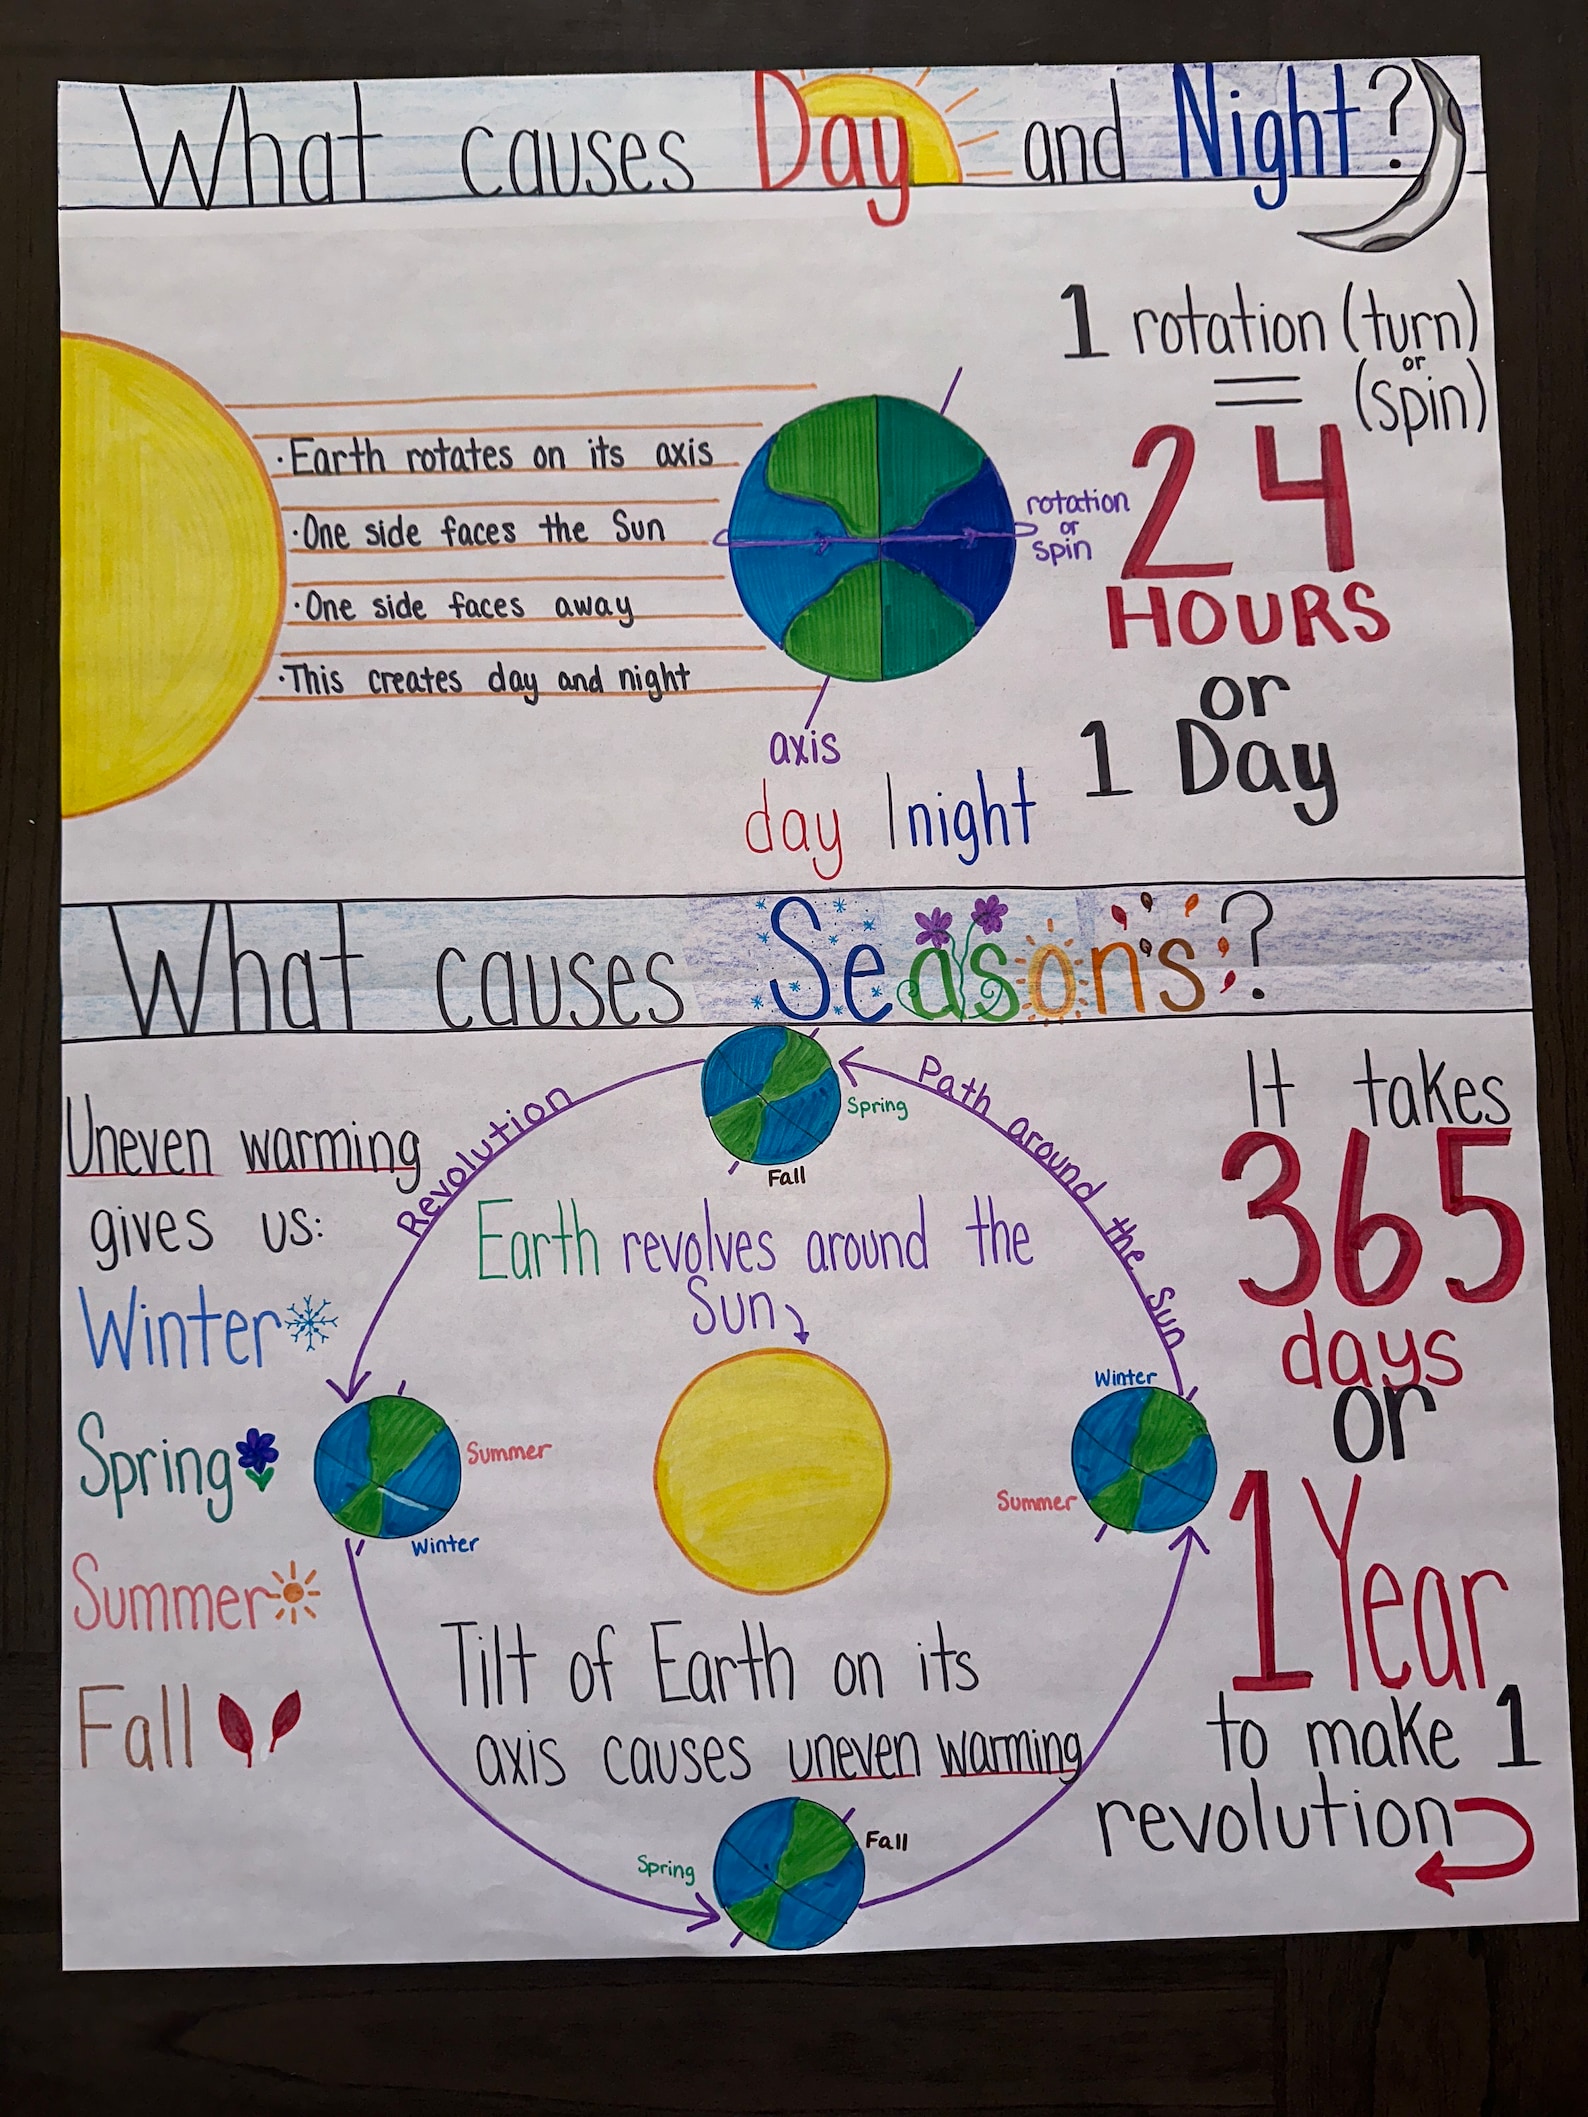 What causes Day and Night?
1 rotation (turn)
or
= (spin)
24
HOURS
or
1 Day
·Earth rotates on its axis
·One side faces the Sun
·One side faces away
·This creates day and night
rotation
or
spin
axis
day | night
What causes Seasons?
Uneven warming
gives us:
Winter
Spring
Summer
Fall
Revolution
Path around the Sun
Spring
Fall
Earth revolves around the
Sun
Summer
Winter
Winter
Summer
Tilt of Earth on its
axis causes uneven warming
Spring
Fall
It takes
365
days
or
1 Year
to make 1
revolution